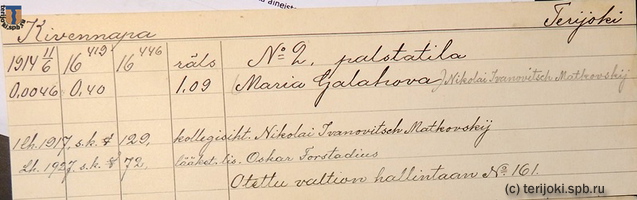 Kivennapa Terijoki
1914 11/6 16 419 16 446 räls № 2, palstatila
0,0046 0,40 1,09 (Maria Galahova) Nikolai Ivanovitsch Matkovskij
1 lh. 1917. s.k. § 129, kollegisiht. Nikolai Ivanovitsch Matkovskij
Lh. 1927. s.k. § 72, lääket. lis. Oskar Forstadius
Otettu valtion hallintaan № 161.
(c) terijoki.spb.ru